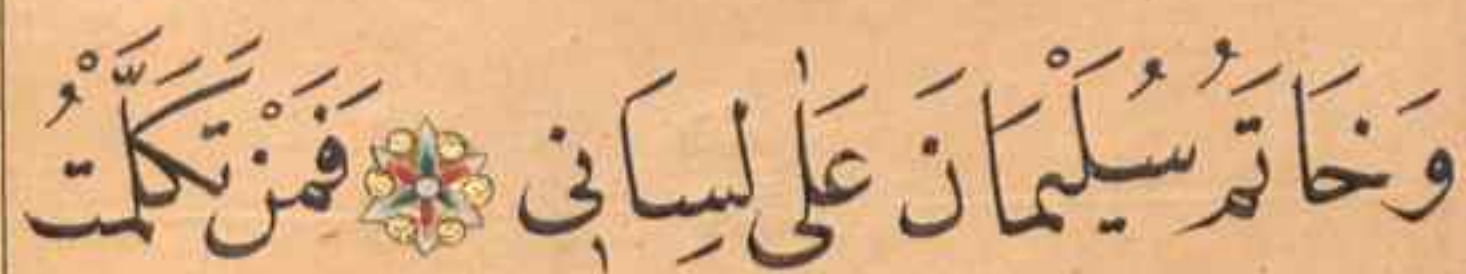 وَخَاتَمُ سُلَيْمَانَ عَلٰى لِسَانِي فَمَنْ تَكَلَّمْتُ